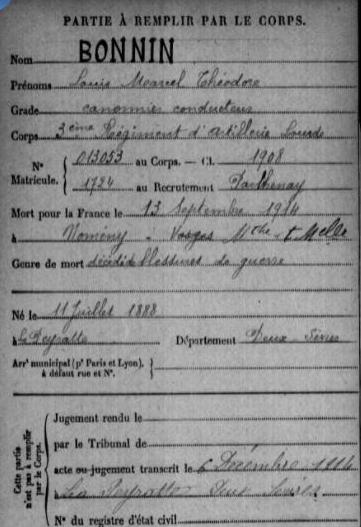 PARTIE À REMPLIR PAR LE CORPS.
Nom BONNIN
Prénoms Louis Marcel Théodore
Grade canonnier conducteur
Corps 3ème Régiment d'Artillerie Lourde
N° Matricule. 013053 au Corps. — Cl. 1908
1724 au Recrutement Parthenay
Mort pour la France le 13 Septembre 1914
à Nomény - Vosges Mthe t Melle
Genre de mort décédé de blessures de guerre
Né le 11 Juillet 1888
à La Peyratte Département Deux-Sèvres
Arrt municipal (pr Paris et Lyon), à défaut rue et N°.
Cette partie n'est pas à remplir par le Corps.
Jugement rendu le
par le Tribunal de
acte ou jugement transcrit le 6 Décembre
La Peyratte Deux Sèvres
N° du registre d'état civil